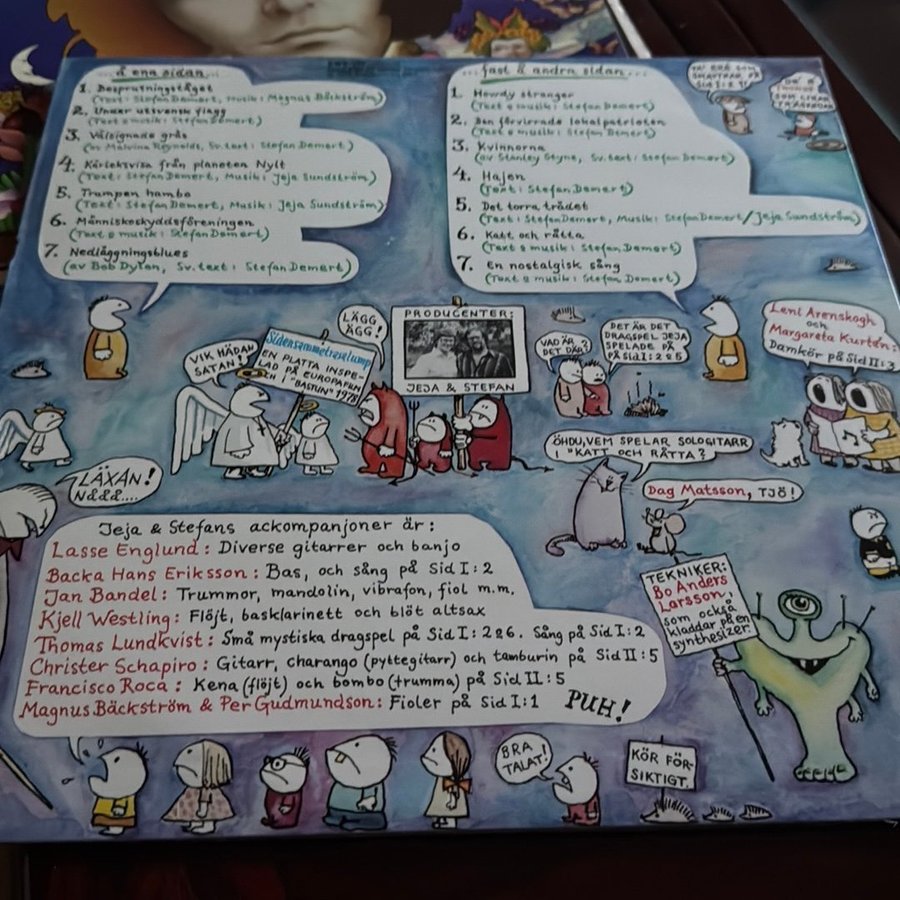 ...å ena sidan...
1. Besprutningståget
(Text: Stefan Demert, Musik: Magnus Bäckström)
2. Unner utsvensk flagg
(Text & musik: Stefan Demert)
3. Välsignade gräs
(av Malvina Reynolds, Sv. text: Stefan Demert)
4. Kärleksvisa från planeten Nylt
(Text: Stefan Demert, Musik: Jeja Sundström)
5. Trumpen hambo
(Text: Stefan Demert, Musik: Jeja Sundström)
6. Människoskyddsföreningen
(Text & musik: Stefan Demert)
7. Nedläggningsblues
(av Bob Dylan, Sv. text: Stefan Demert)
...fast å andra sidan...
1. Howdy stranger
(Text & musik: Stefan Demert)
2. Den förvirrade lokalpatrioten
(Text & musik: Stefan Demert)
3. Kvinnorna
(av Stanley Styne, Sv. text: Stefan Demert)
4. Hajen
(Text: Stefan Demert)
5. Det torra trädet
(Text: Stefan Demert, Musik: Stefan Demert/Jeja Sundström)
6. Katt och råtta
(Text & musik: Stefan Demert)
7. En nostalgisk sång
(Text & musik: Stefan Demert)
SOM
SID I: 2
SOM
VIK HÄDAN
SATAN!
Sidensammetreselump
EN PLATTA INSPE-
LAD PÅ EUROPAFILM
OCH I "BASTUN" 1978
LÄGG
ÄGG!
PRODUCENTER:
JEJA & STEFAN
VAD ÄR
DET DÄR?
DET ÄR DET
DRAGSPEL JEJA
SPELADE PÅ
PÅ Sid I: 2 & 5
Leni Arenskogh
och
Margareta Kurtén:
Damkör på Sid II: 3
ÖHDU, VEM SPELAR SOLOGITARR
I "KATT OCH RÅTTA?
Dag Matsson, TJÖ!
LÄXAN!
NÅÅÅ....
Jeja & Stefans ackompanjoner är:
Lasse Englund: Diverse gitarrer och banjo
Backa Hans Eriksson: Bas, och sång på Sid I: 2
Jan Bandel: Trummor, mandolin, vibrafon, fiol m.m.
Kjell Westling: Flöjt, basklarinett och blöt altsax
Thomas Lundkvist: Små mystiska dragspel på Sid I: 2&6. Sång på Sid I: 2
Christer Schapiro: Gitarr, charango (pyttegitarr) och tamburin på Sid II: 5
Francisco Roca: Kena (flöjt) och bombo (trumma) på Sid II: 5
Magnus Bäckström & Per Gudmundson: Fioler på Sid I: 1
PUH!
TEKNIKER:
Bo Anders
Larsson,
som också
kladdar på en
synthesizer.
BRA
TALAT!
KÖR FÖR-
SIKTIGT.